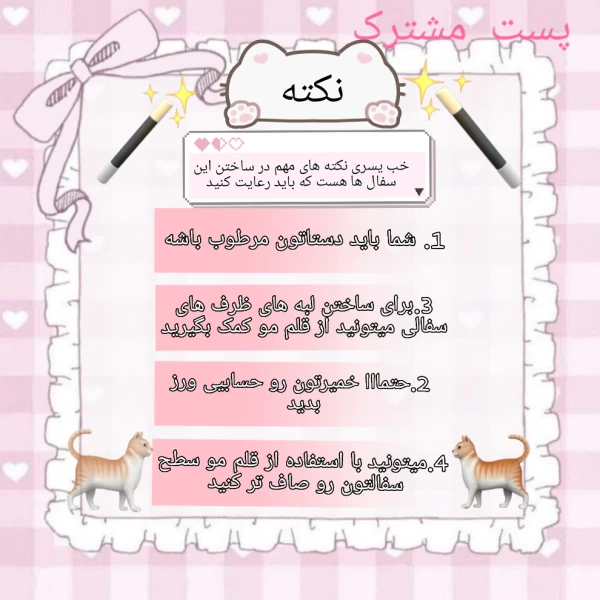 پست مشترک
نکته
خب یسری نکته های مهم در ساختن این
سفال ها هست که باید رعایت کنید
1. شما باید دستاتون مرطوب باشه
3.برای ساختن لبه های ظرف های
سفالی میتونید از قلم مو کمک بگیرید
2.حتمااا خمیرتون رو حسابیی ورز
بدید
4.میتونید با استفاده از قلم مو سطح
سفالتون رو صاف تر کنید